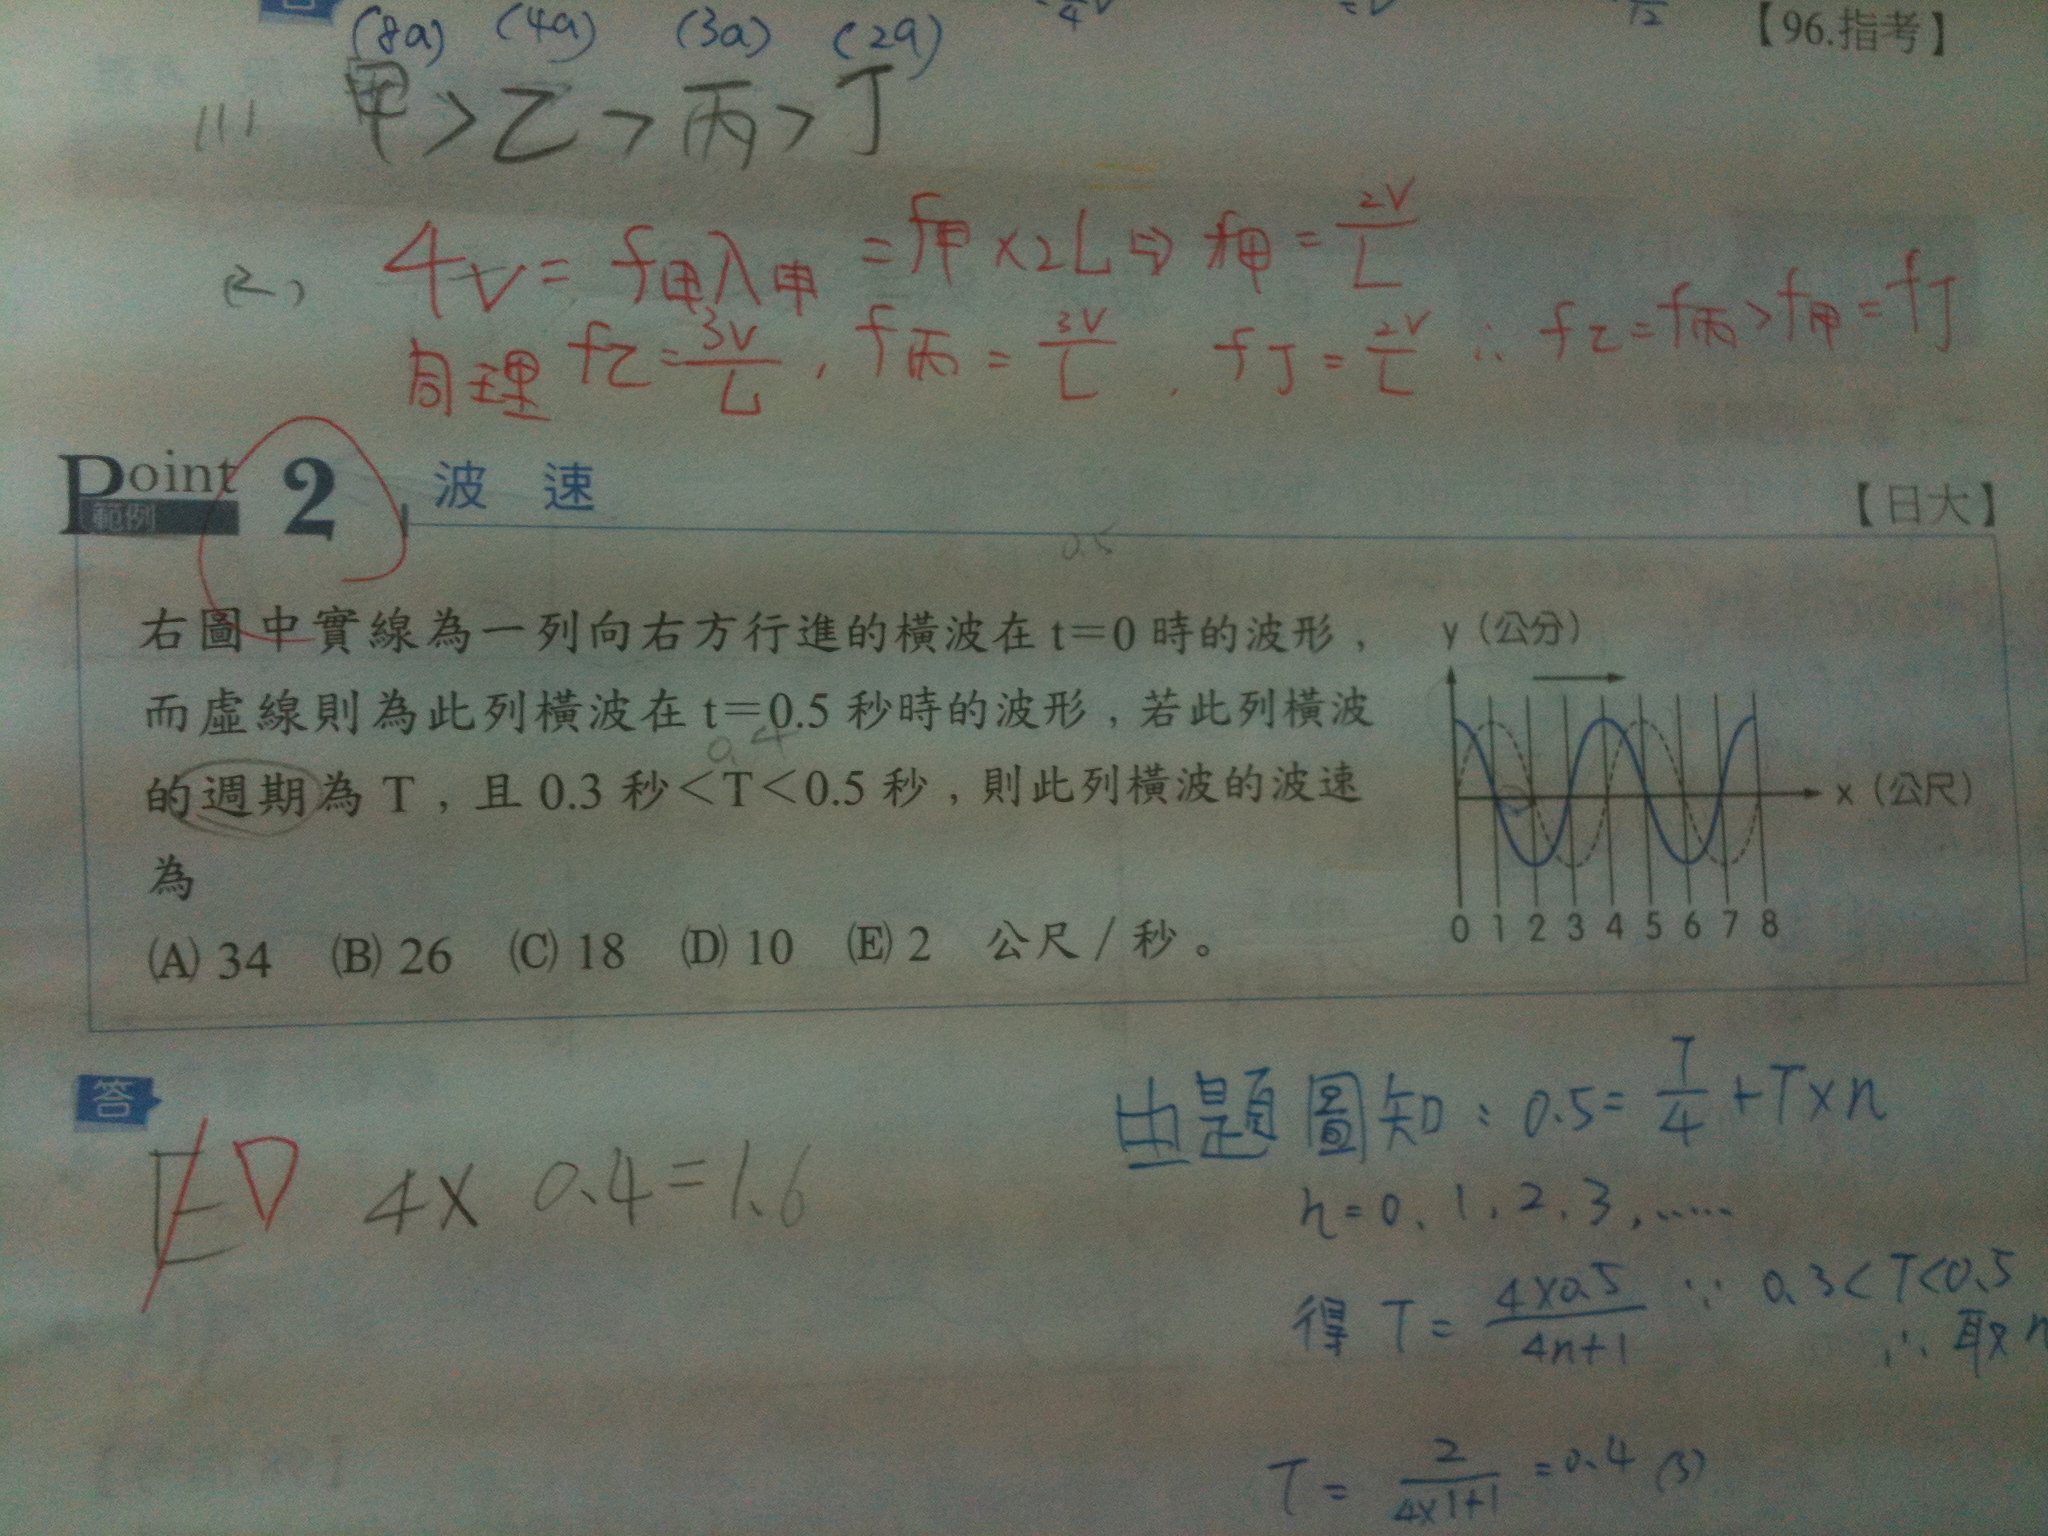 (8a) (4a) (3a) (2a)
【96.指考】
(1) 甲>乙>丙>丁
(2) 4v=f甲λ甲=f甲×2L⇒f甲=2V/L
同理 f乙=3V/L, f丙=3V/L, f丁=2V/L ∴ f乙=f丙>f甲=f丁
Point 2 波速
範例
【日大】
0.5
右圖中實線為一列向右方行進的橫波在 t=0 時的波形，
而虛線則為此列橫波在 t=0.5 秒時的波形，若此列橫波
0.4
的週期為 T，且 0.3 秒<T<0.5 秒，則此列橫波的波速
為
(A) 34 (B) 26 (C) 18 (D) 10 (E) 2 公尺／秒。
y（公分）
x（公尺）
0 1 2 3 4 5 6 7 8
答
E D 4× 0.4=1.6
由題圖知：0.5=T/4+T×n
n=0、1、2、3，……
得 T=4×0.5/4n+1 ∵ 0.3<T<0.5
∴ 取n
T=2/4×1+1=0.4 (s)